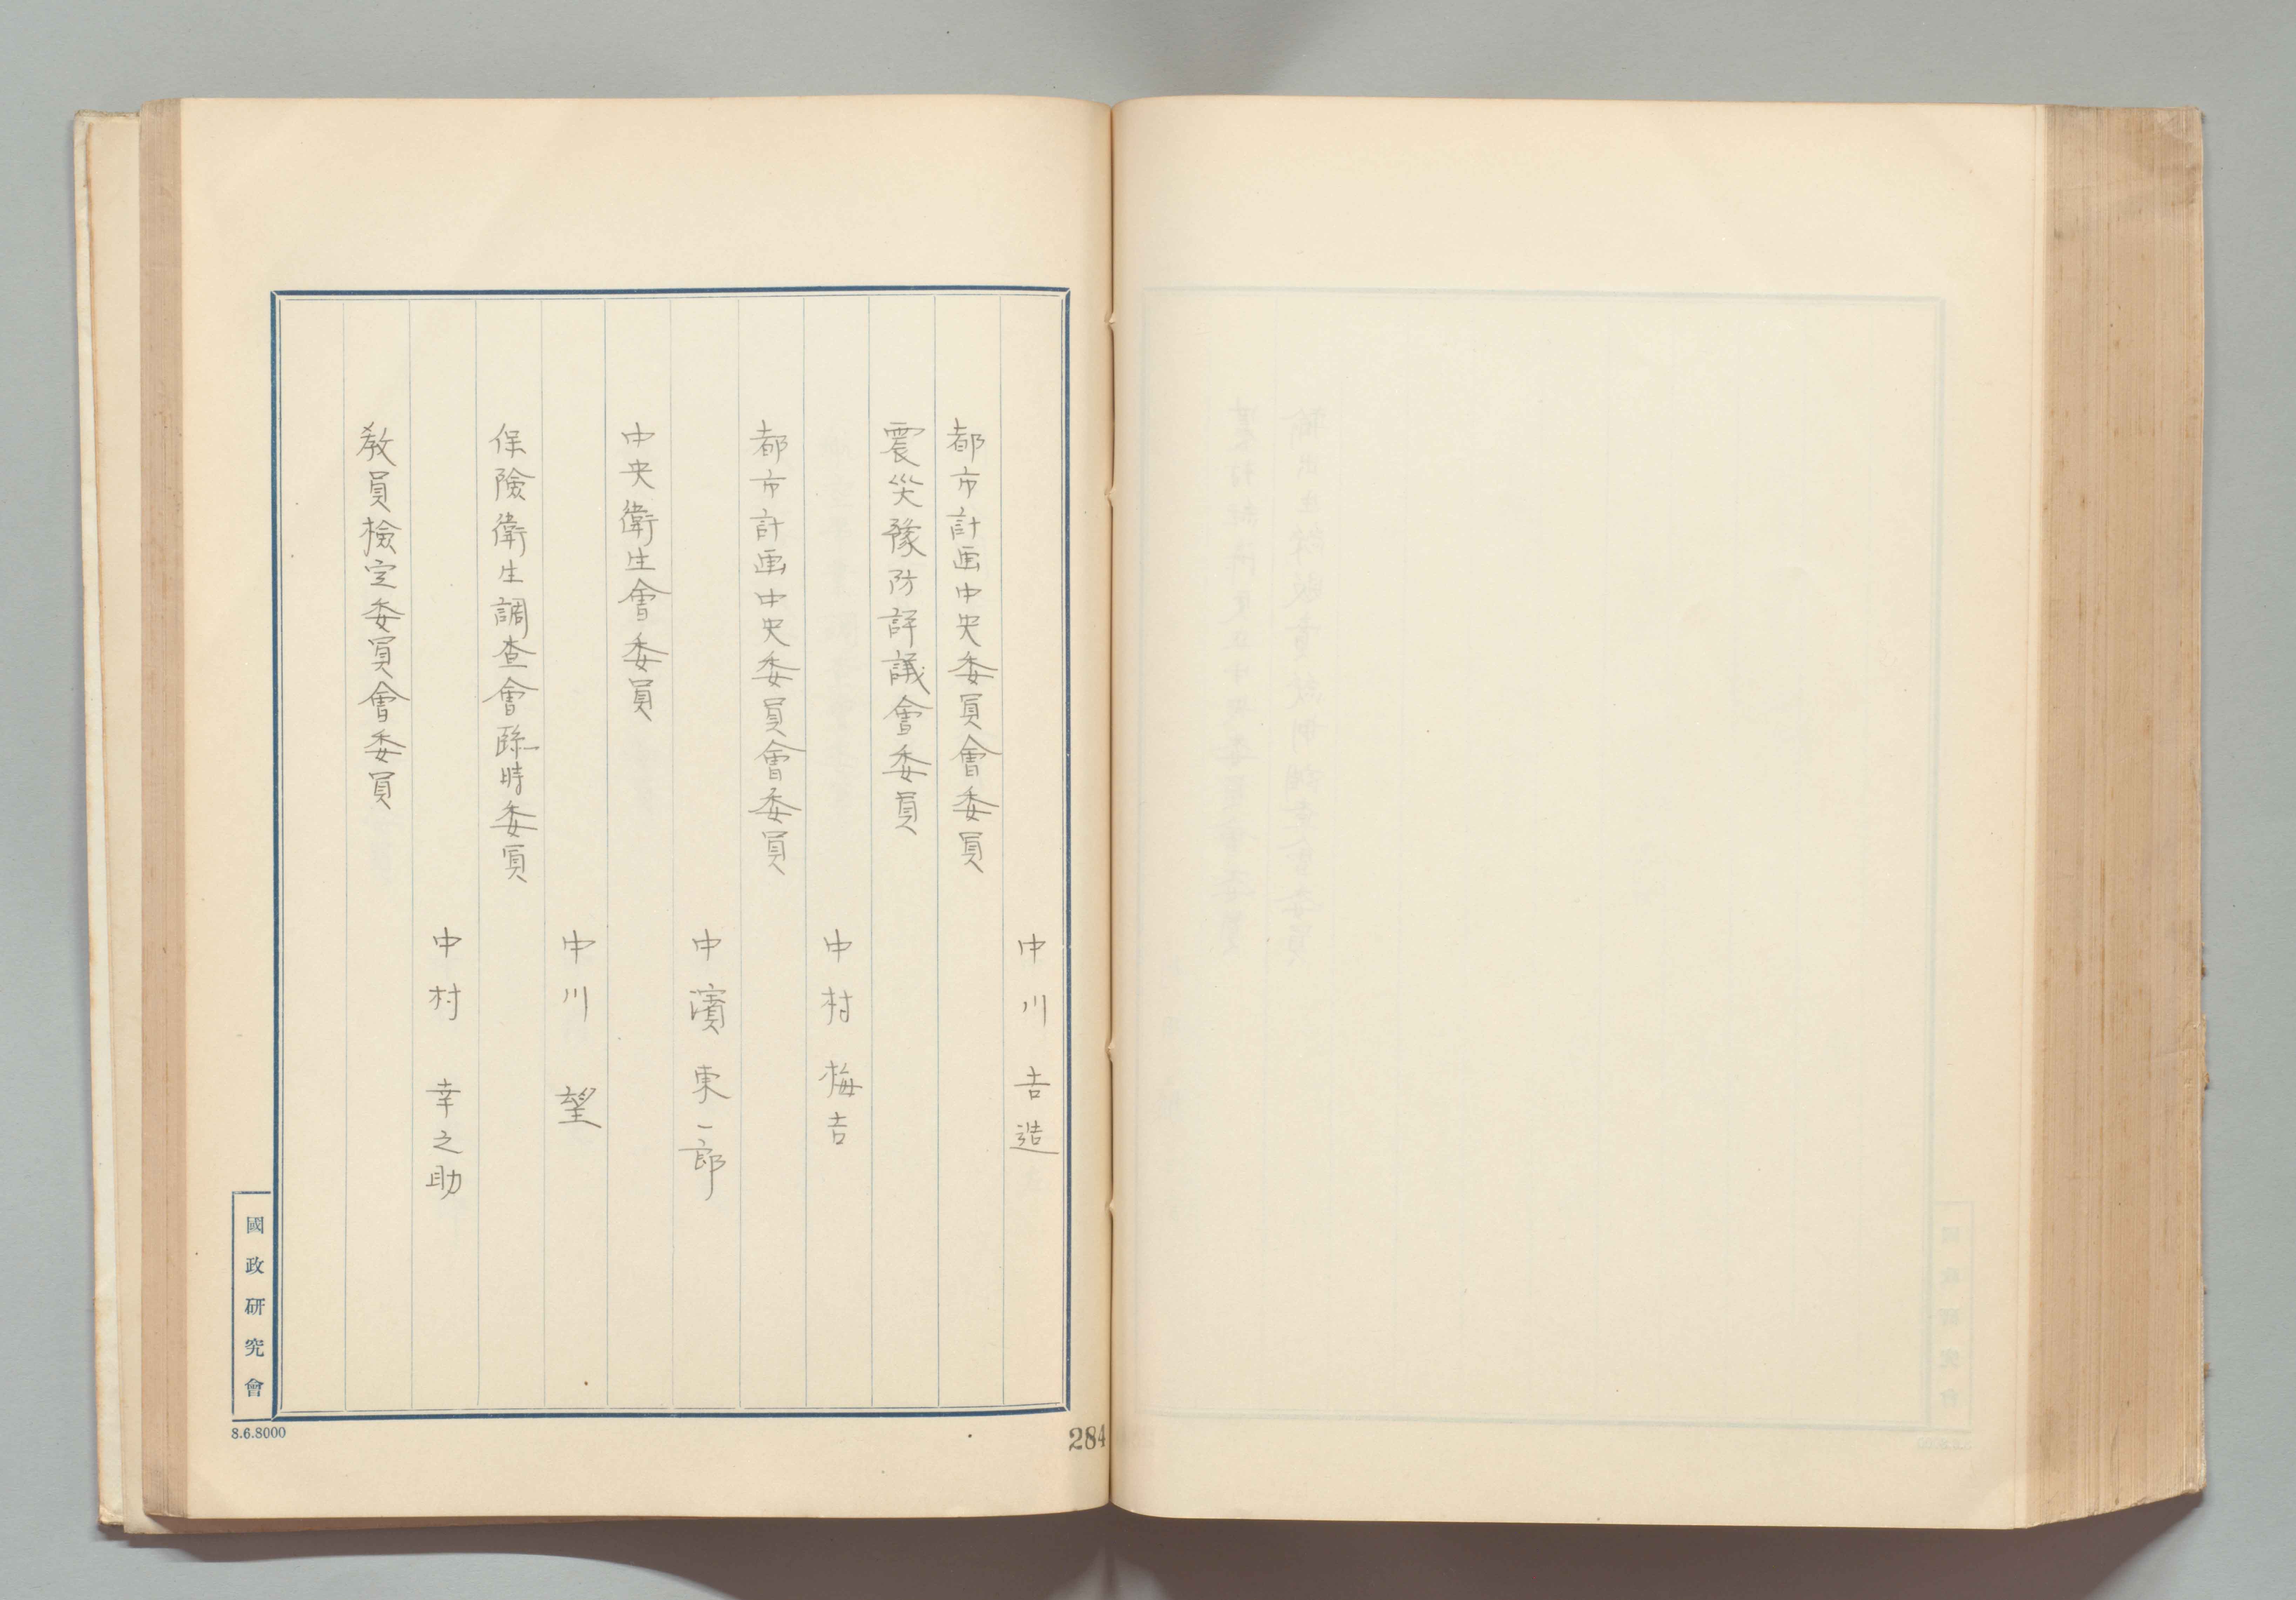 中川吉造
都市計画中央委員會委員
震災豫防評議會委員
中村梅吉
都市計画中央委員會委員
中濱東一郎
中央衛生會委員
中川望
保險衛生調査會臨時委員
中村幸之助
教員檢定委員會委員
國政研究會
8.6.8000
284